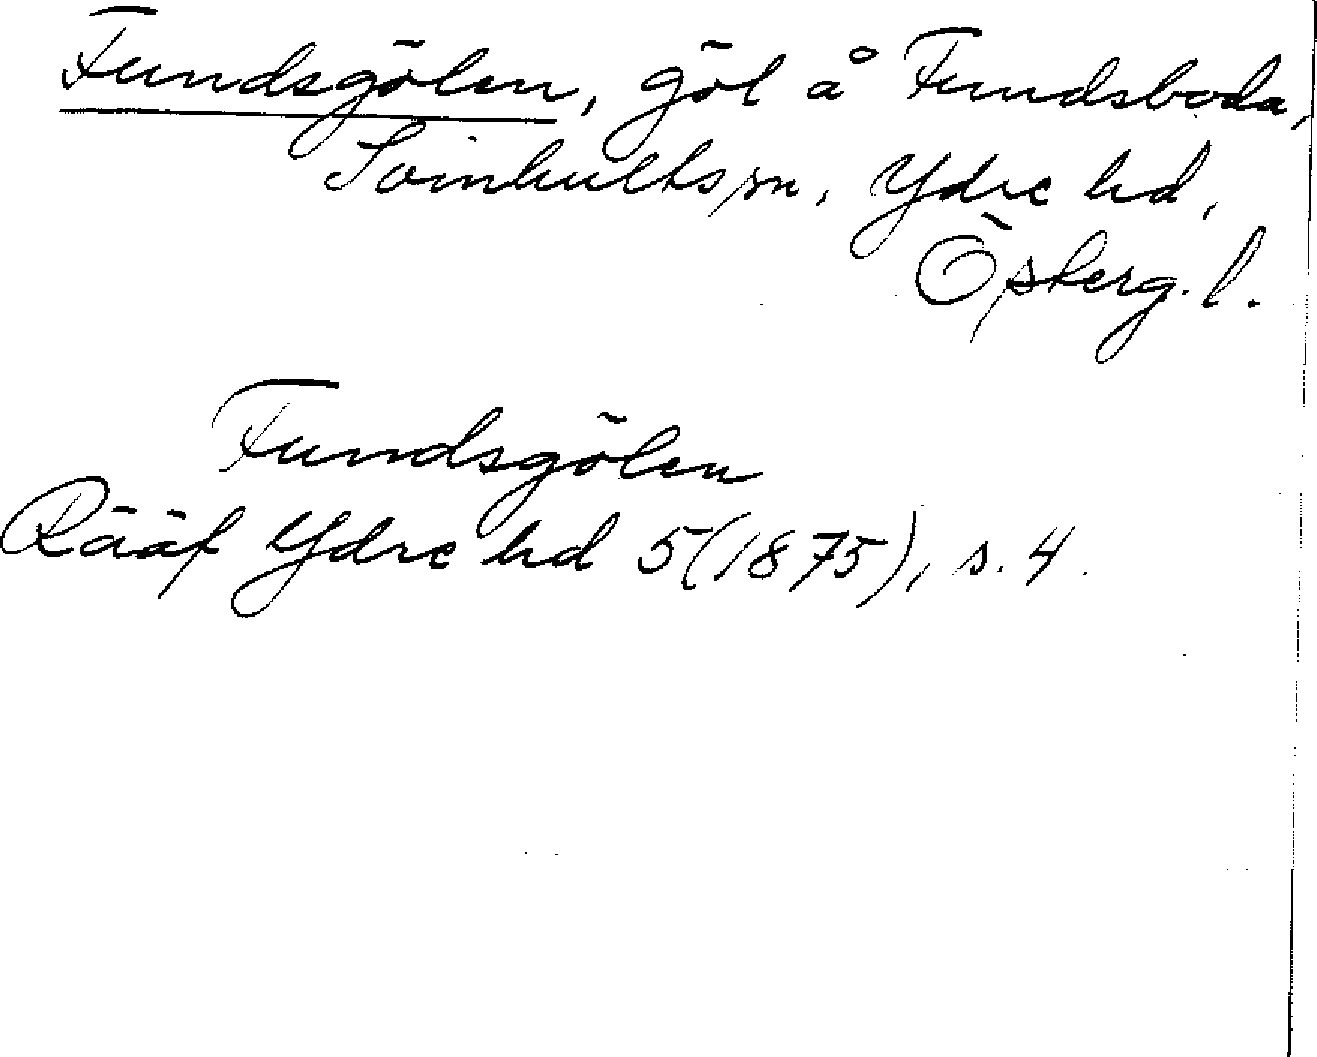 Fundsgölen, göl å Fundsboda,
Svinhults sn, Ydre hd,
Österg. l.
Fundsgölen
Rääf Ydre hd 5 (1875), s. 4.